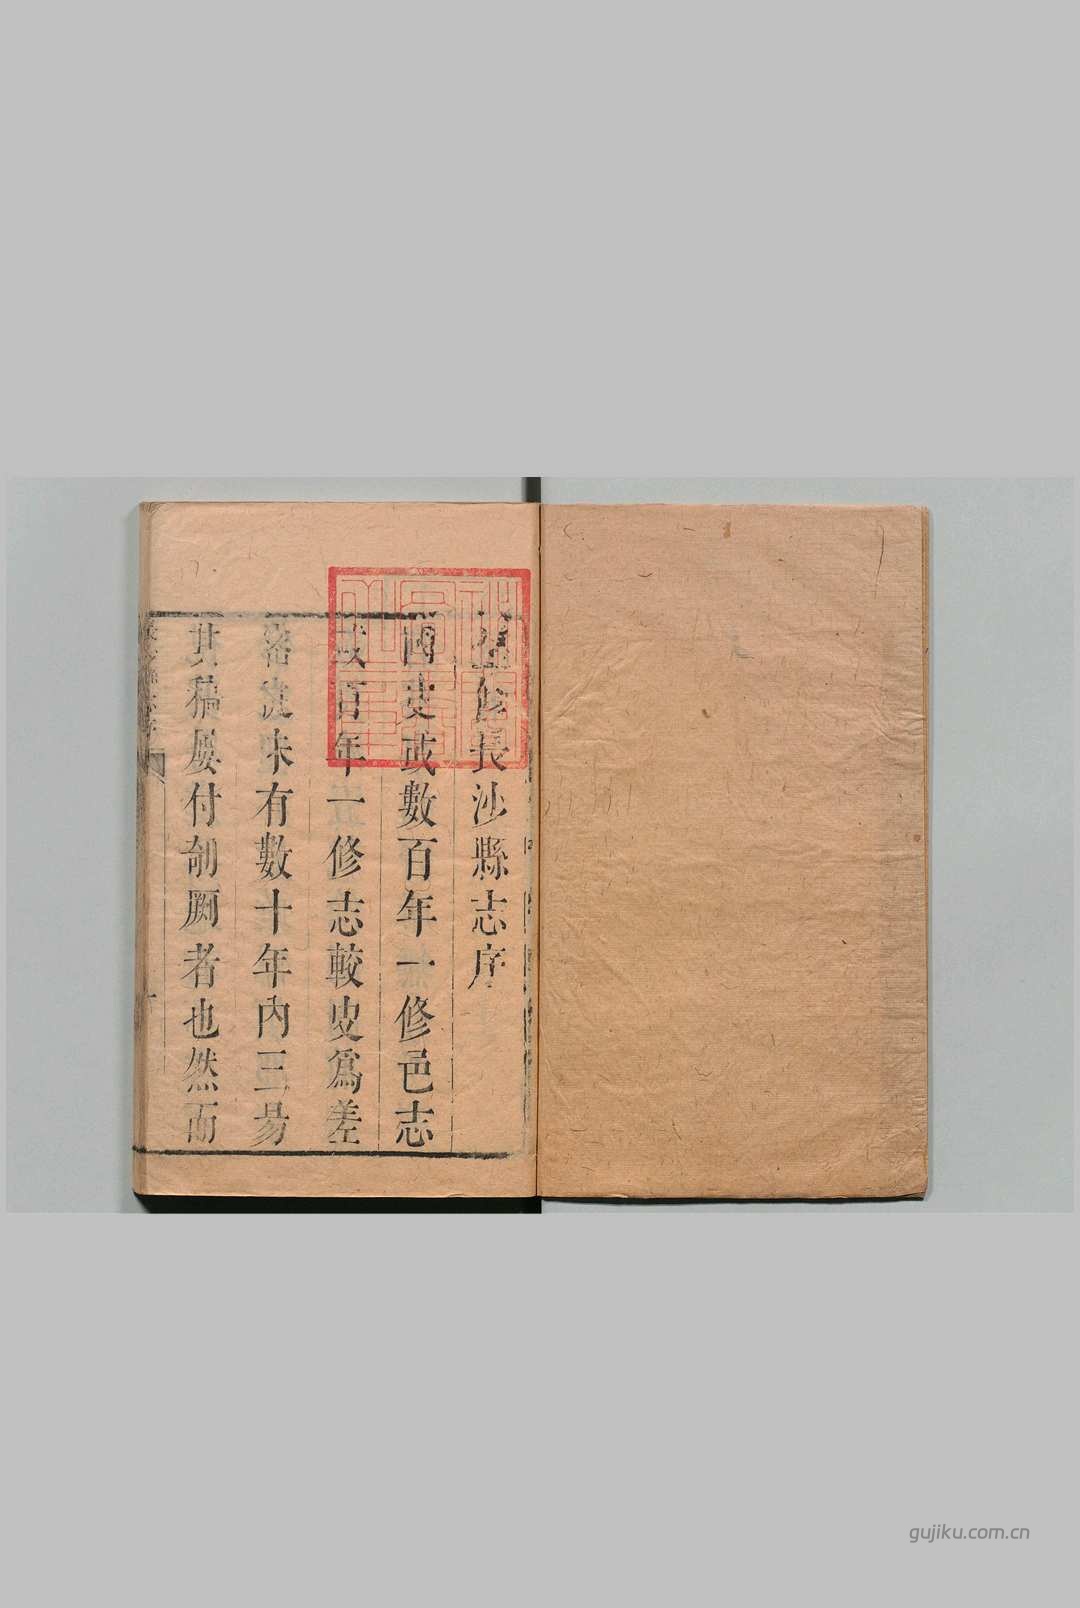 修長沙縣志序
國史或數百年一修邑志
或百年一修志較史爲差
密從未有數十年內三易
其稿屢付剞劂者也然而
gujiku.com.cn